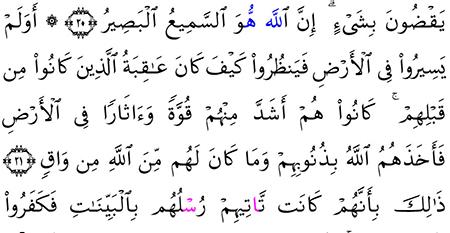 يَقْضُونَ بِشَىْءٍ ۗ إِنَّ ٱللَّه هُّوَ ٱلسَّمِيعُ ٱلْبَصِيرُ ﴿٢٠﴾ ۞ أَوَلَمْ
يَسِيرُوا۟ فِى ٱلْأَرْضِ فَيَنظُرُوا۟ كَيْفَ كَانَ عَـٰقِبَةُ ٱلَّذِينَ كَانُوا۟ مِن
قَبْلِهِمْ ۚ كَانُوا۟ هُمْ أَشَدَّ مِنْهُمْ قُوَّةً وَءَاثَارًا فِى ٱلْأَرْضِ
فَأَخَذَهُمُ ٱللَّهُ بِذُنُوبِهِمْ وَمَا كَانَ لَهُم مِّنَ ٱللَّهِ مِن وَاقٍ ﴿٢١﴾
ذَٰلِكَ بِأَنَّهُمْ كَانَت تَّاتِيهِمْ رُسْلُهُم بِٱلْبَيِّنَـٰتِ فَكَفَرُوا۟